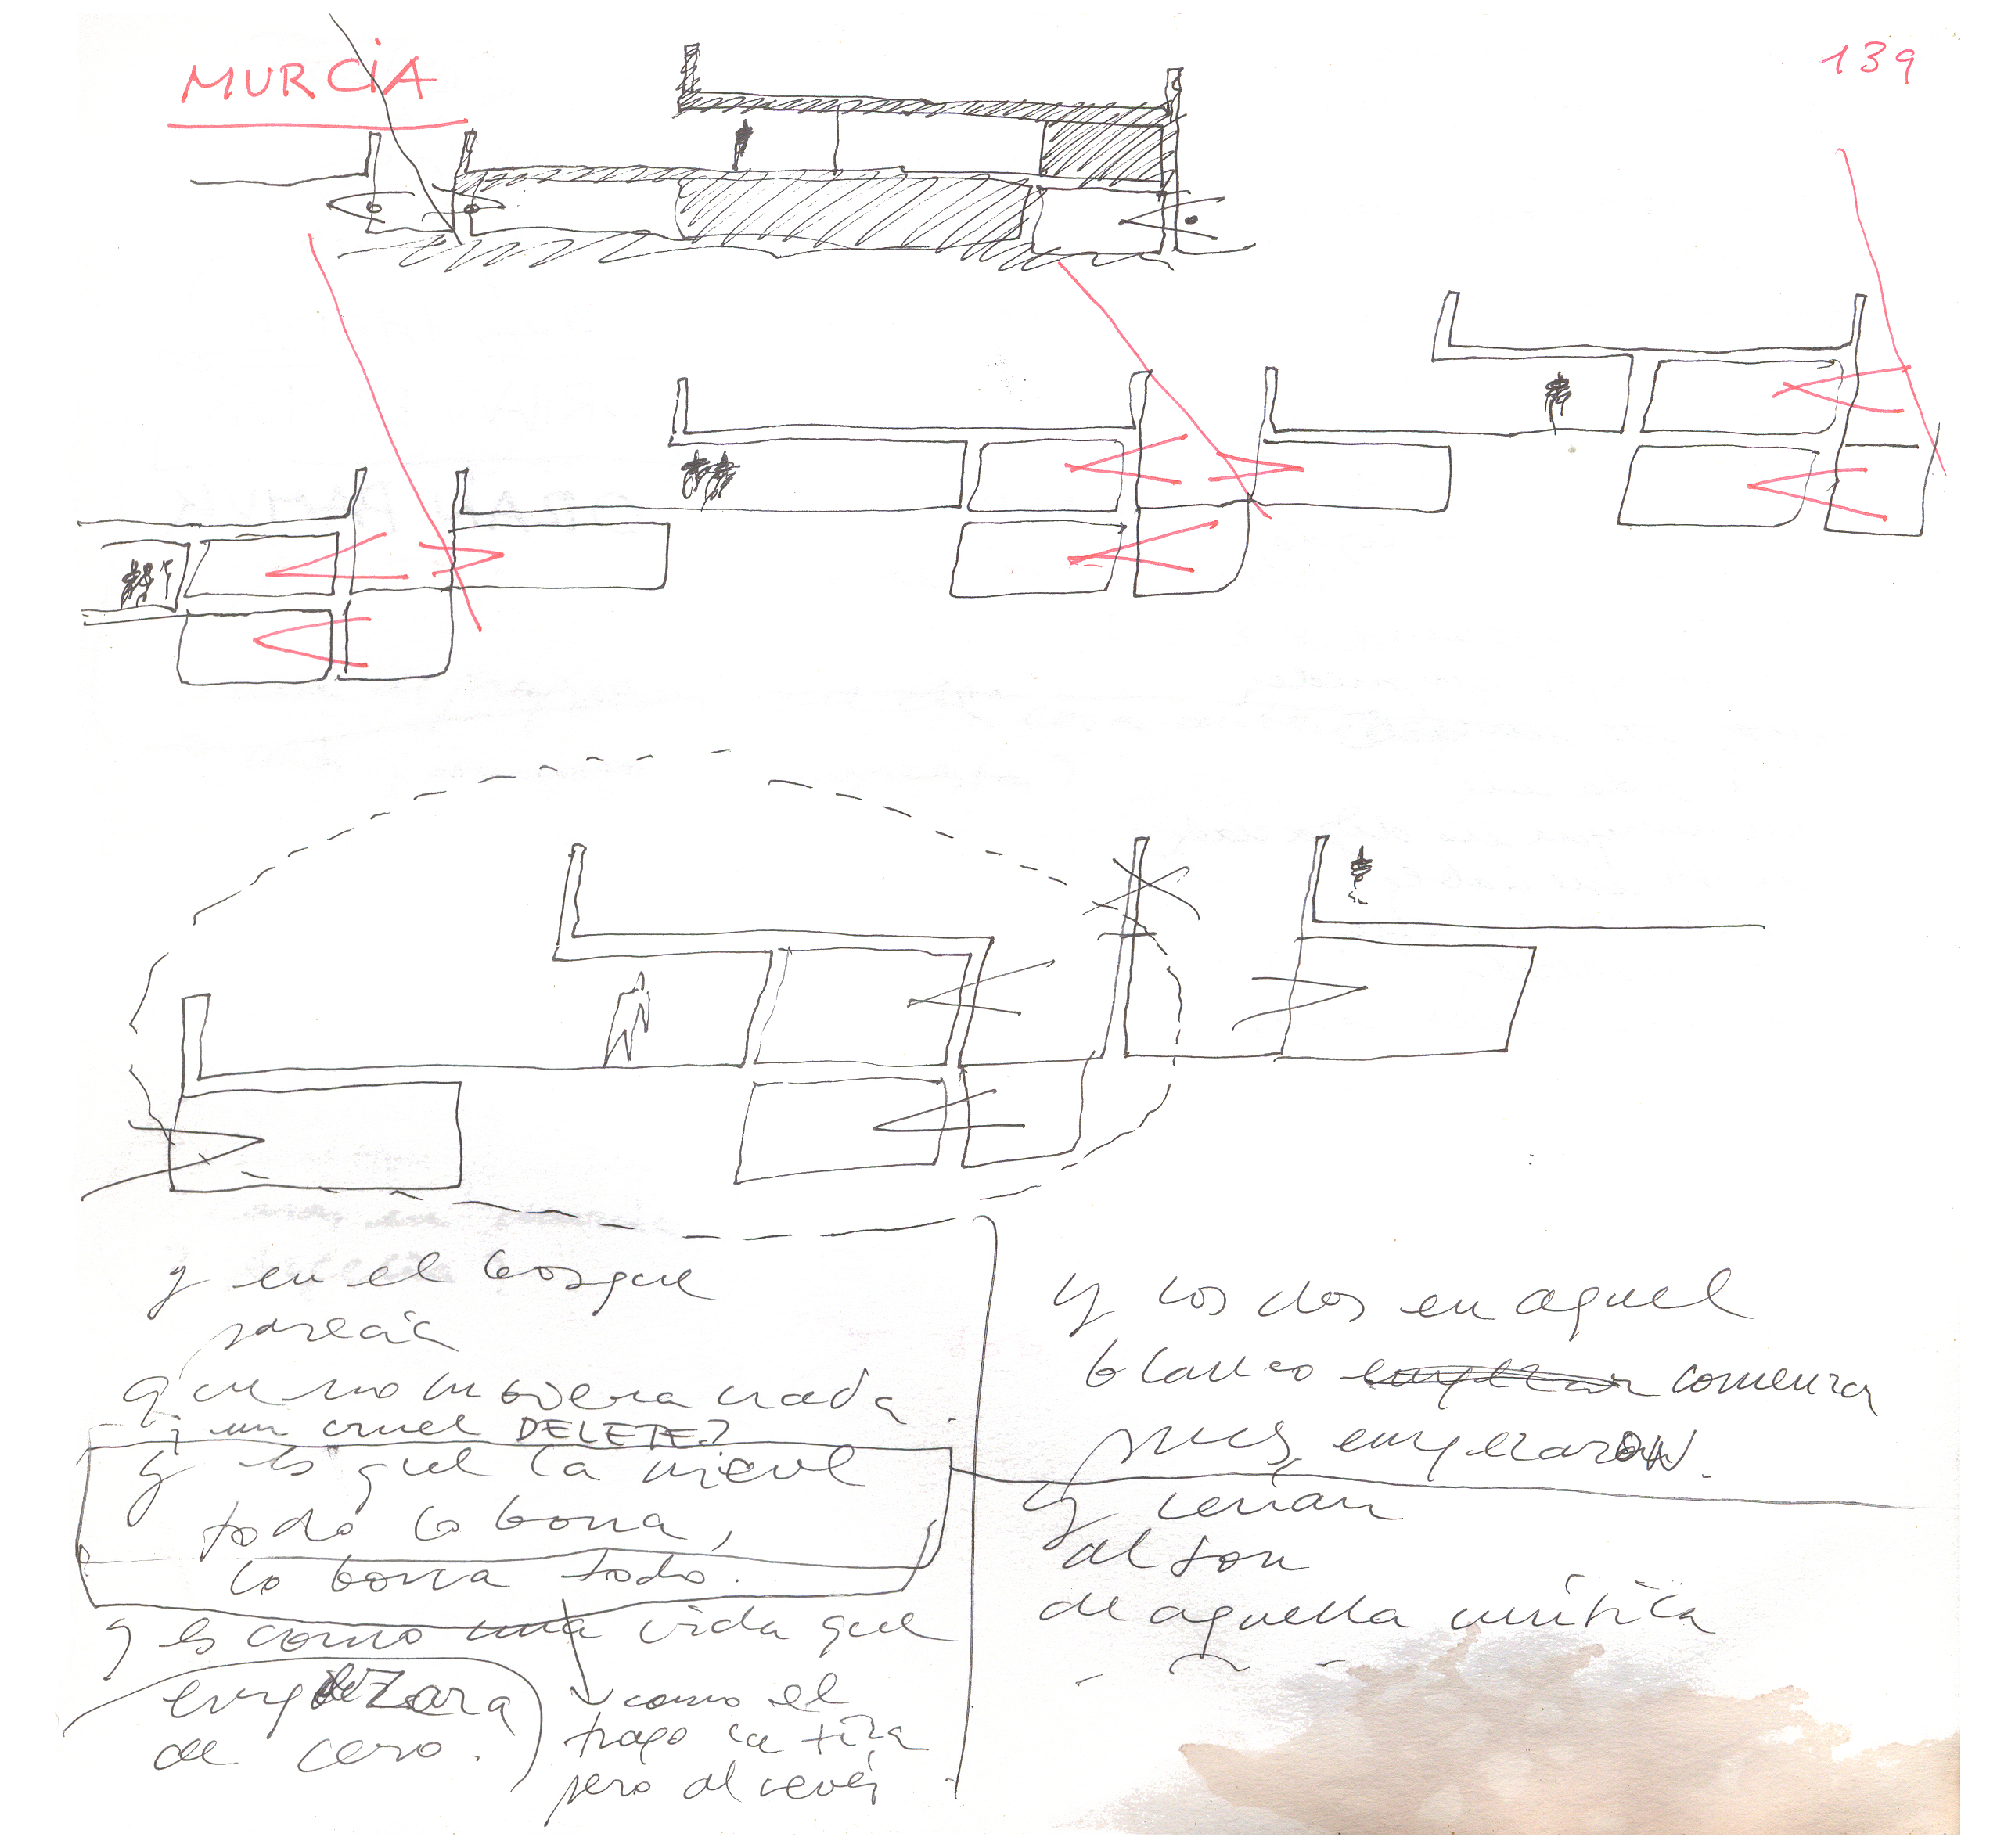 MURCIA
139
y en el bosque
parecía
que no hubiera nada.
y un cruel DELETE?
y es que la nieve
todo lo borra,
lo borra todo.
y es como una vida que
empezara
de cero.
como el
trapo la tiza
pero al revés
y los dos en aquel
blanco empezar comenza
pues, empezaron.
y
al son
de aquella